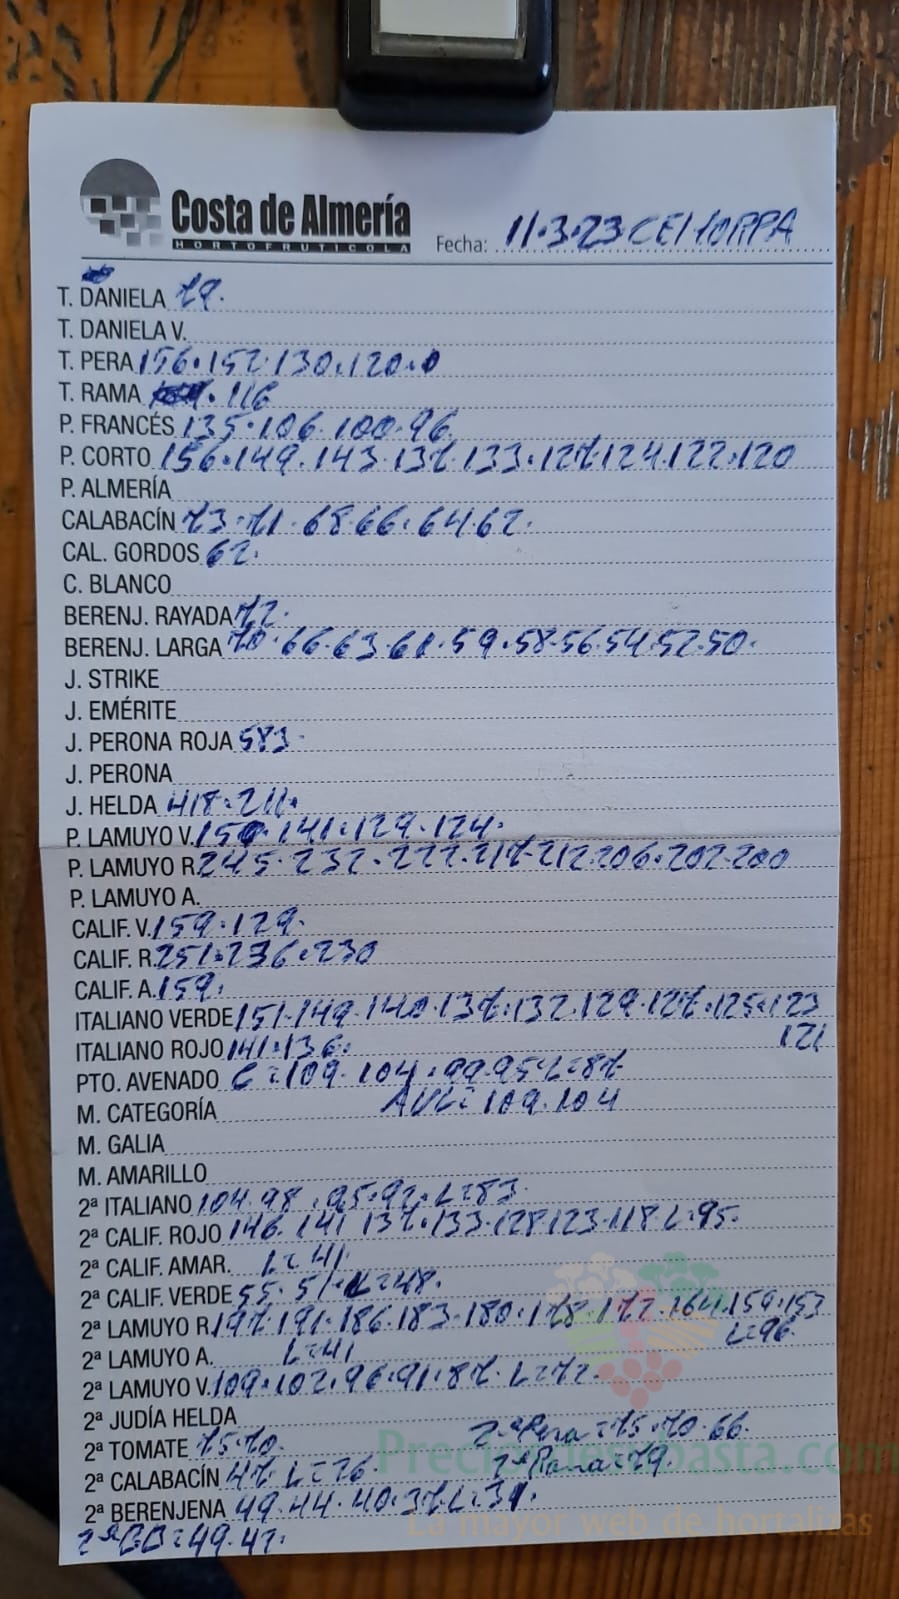 Costa de Almería
HORTOFRUTICOLA
Fecha: 11.3.23 CEHORPA
T. DANIELA 79.
T. DANIELA V.
T. PERA 156.152.130.120.0
T. RAMA .116
P. FRANCÉS 135.106.100.96
P. CORTO 156.149.143.137.133.127.124.122.120
P. ALMERÍA
CALABACÍN 73.71.68.66.64.62.
CAL. GORDOS 62.
C. BLANCO
BERENJ. RAYADA 72.
BERENJ. LARGA 70.66.63.61.59.58.56.54.52.50.
J. STRIKE
J. EMÉRITE
J. PERONA ROJA 583.
J. PERONA
J. HELDA 418.211.
P. LAMUYO V. 159.141.129.124.
P. LAMUYO R. 245.232.222.217.212.206.202.200
P. LAMUYO A.
CALIF. V. 159.129.
CALIF. R. 251.236.230
CALIF. A. 159.
ITALIANO VERDE 151.149.140.137.132.129.127.125.123
121
ITALIANO ROJO 141.136.
PTO. AVENADO C=109.104.99.95.L=87
AVL= 109.104
M. CATEGORÍA
M. GALIA
M. AMARILLO
2ª ITALIANO 104.98.95.92.L=83.
2ª CALIF. ROJO 146.141 137.133.128.123.118.L=95.
2ª CALIF. AMAR. L=41
2ª CALIF. VERDE 55.51.L=48.
2ª LAMUYO R. 197.191.186.183.180.178.172.164.159.153
L=96.
2ª LAMUYO A. L=41
2ª LAMUYO V. 109.102.96.91.87.L=72.
2ª JUDÍA HELDA
2ª Pera=75.70.66.
2ª TOMATE 75.70.
2ª Rama=79.
2ª CALABACÍN 47.L=26.
2ª BERENJENA 49.44.40.37.L=31.
2ª BB=49.42.
Preciosdesubasta.com
La mayor web de hortalizas